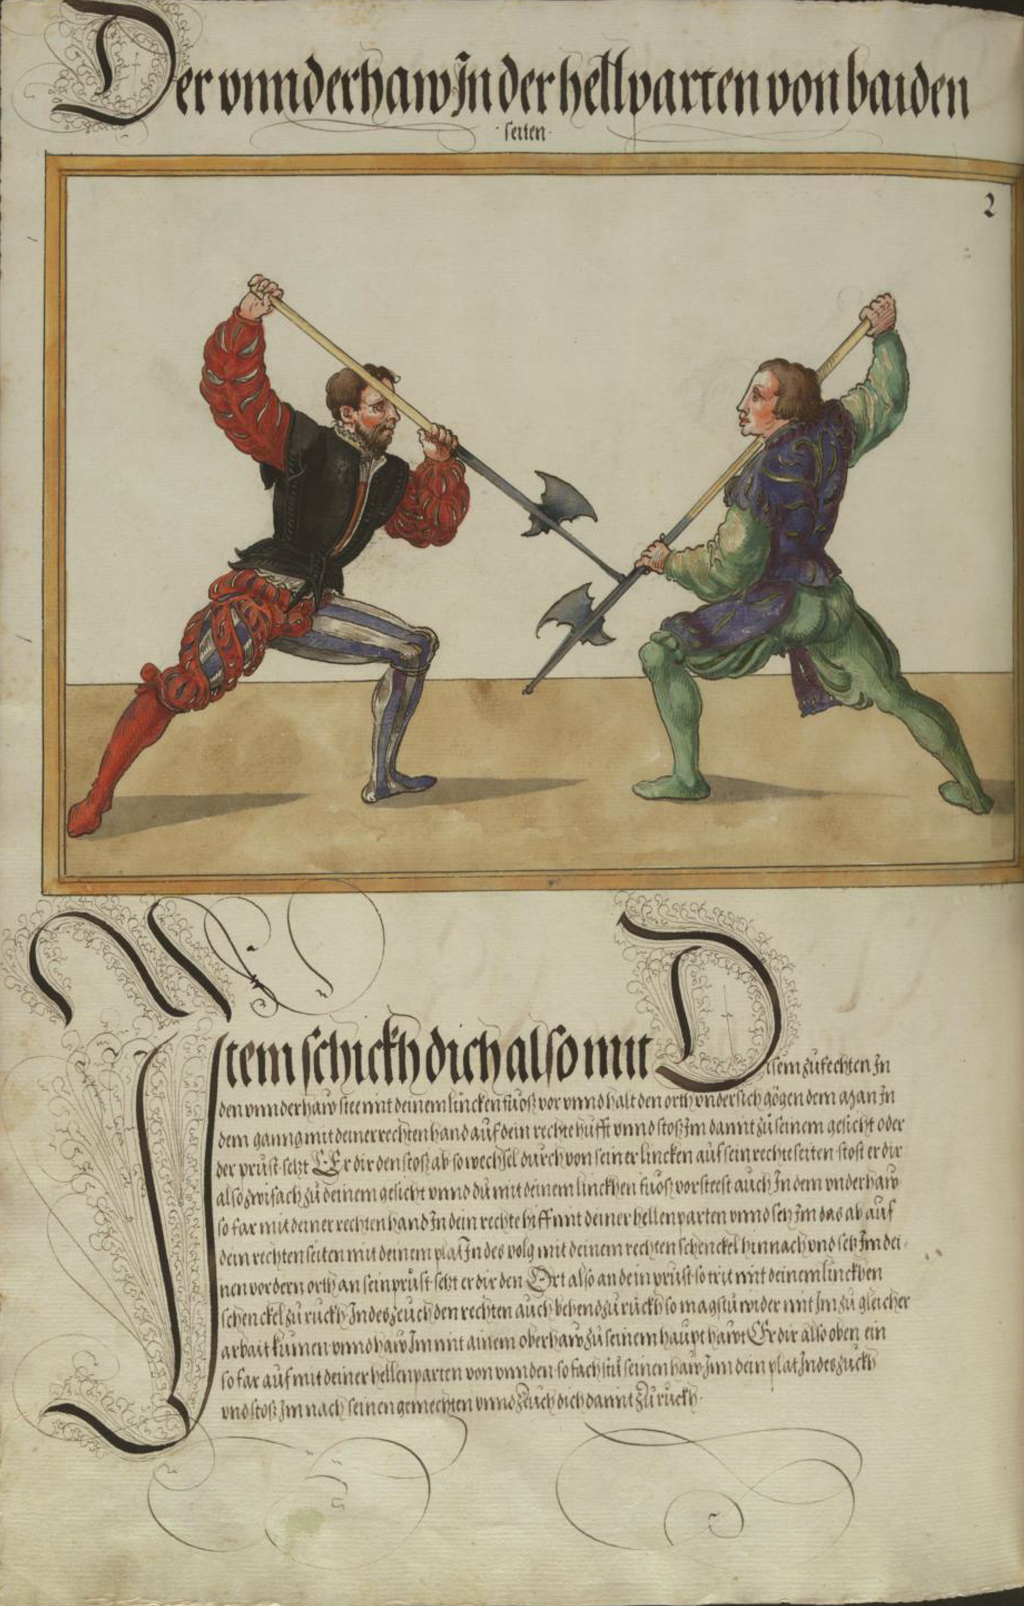 Der vnnderhaw Jn der hellparten von baiden
seiten.
2
Jtem schickh dich also mit Disem zufechten Jn
den vnnderhaw stee mit deinem lincken fuoß vor vnnd halt den orth vndersich gögen dem Man Jn
dem ganng mit deiner rechten hand auf dein rechte hüfft vnnd stoß Jm dannt zu seinem gesicht oder
der prust setzt Er dir den stoß ab so wechsel durch von seiner lincken auf sein rechte seiten stost er dir
also zwifach zu deinem gesicht vnnd du mit deinem linckhen fuoß vor steest auch Jn dem vnderhaw
so far mit deiner rechten hand Jn dein rechte hiff mit deiner hellenparten vnnd setz Jm das ab auf
dein rechten seiten mit deinem plat Jndes volg mit deinem rechten schenckel hinnach vnd setz Jm dei-
nen vordern orth an sein prüst setzt er dir den Ort also an dein prust so trit mit deinem linckhen
schenckel zu ruckh Jndes zeuch den rechten auch behend zu ruckh so magstu wider mit Jm zu gleicher
arbait kumen vnnd haw Jm mit ainem oberhaw zu seinem haupt hawt Er dir also oben ein
so far auf mit deiner hellenparten von vnnden so fachstu seinen haw Jnn dein plat Jndes zuckh
vnd stoß Jm nach seinen gemechten vnnd zeuch dich damit zu ruckh.